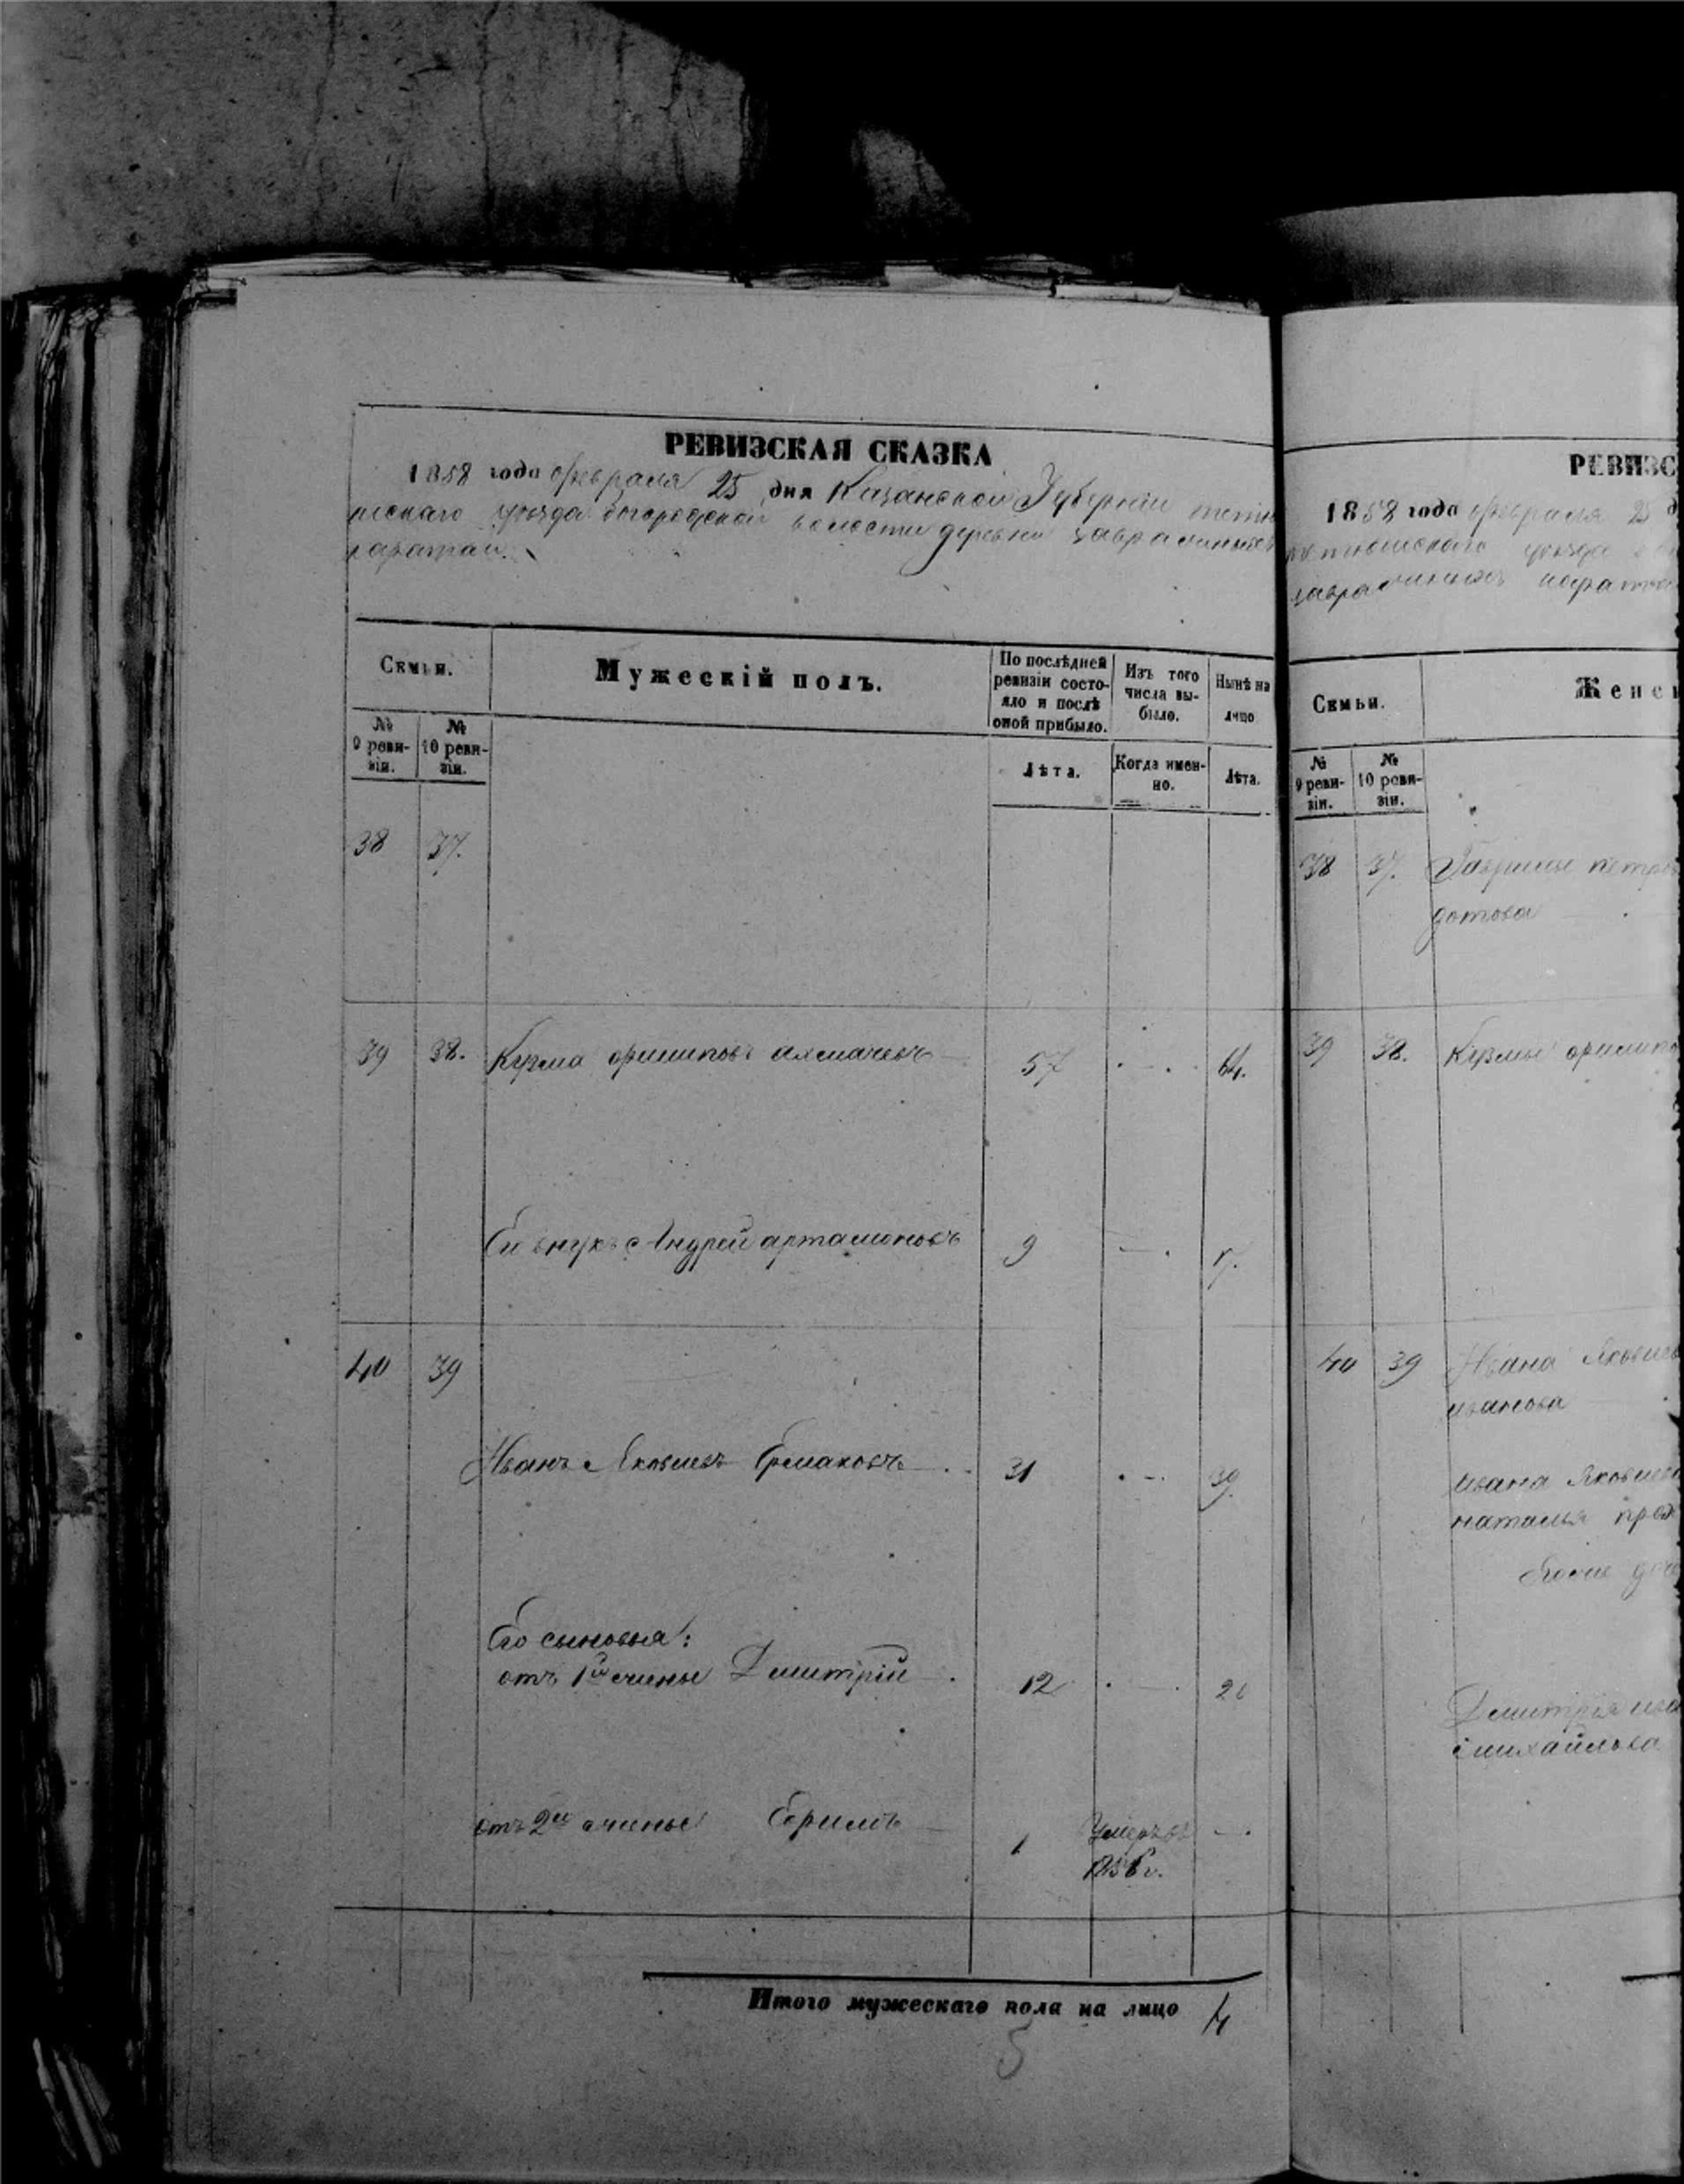 РЕВИЗСКАЯ СКАЗКА
1858 года февраля 25 дня Казанской Губернии тетю
шскаго уѣзда богородской волости деревни
каратаи.
Семьи.
Мужескій полъ.
По послѣдней ревизіи состо-
яло и послѣ
оной прибыло.
Изъ того
числа вы-
было.
Нынѣ на
лицо
№
9 реви-
зіи.
№
10 реви-
зіи.
Лѣта.
Когда имен-
но.
Лѣта.
38 37.
39 38. Кузма филиповъ 57 64.
Его внукъ Андрей артамоновъ 9
40 39
Иванъ Яковлевъ Ермаковъ 31 39.
Его сыновья:
отъ 1й жены Дмитрій 12 20
отъ 2й жены Ефимъ 1 Умеръ въ
185 г.
Итого мужескаго пола на лицо 4
5
РЕВИЗС
1858 года февраля 25 д
тетюшскаго уѣзда
Семьи.
Женск
№
9 реви-
зіи.
№
10 реви-
зіи.
38 37. Гаврилы петров
дотова
39 38. Кузмы филипо
40 39 Ивана Яковлев
иванова
Ивана Яковлева
наталья прох
Дмитрія ива
михайлова